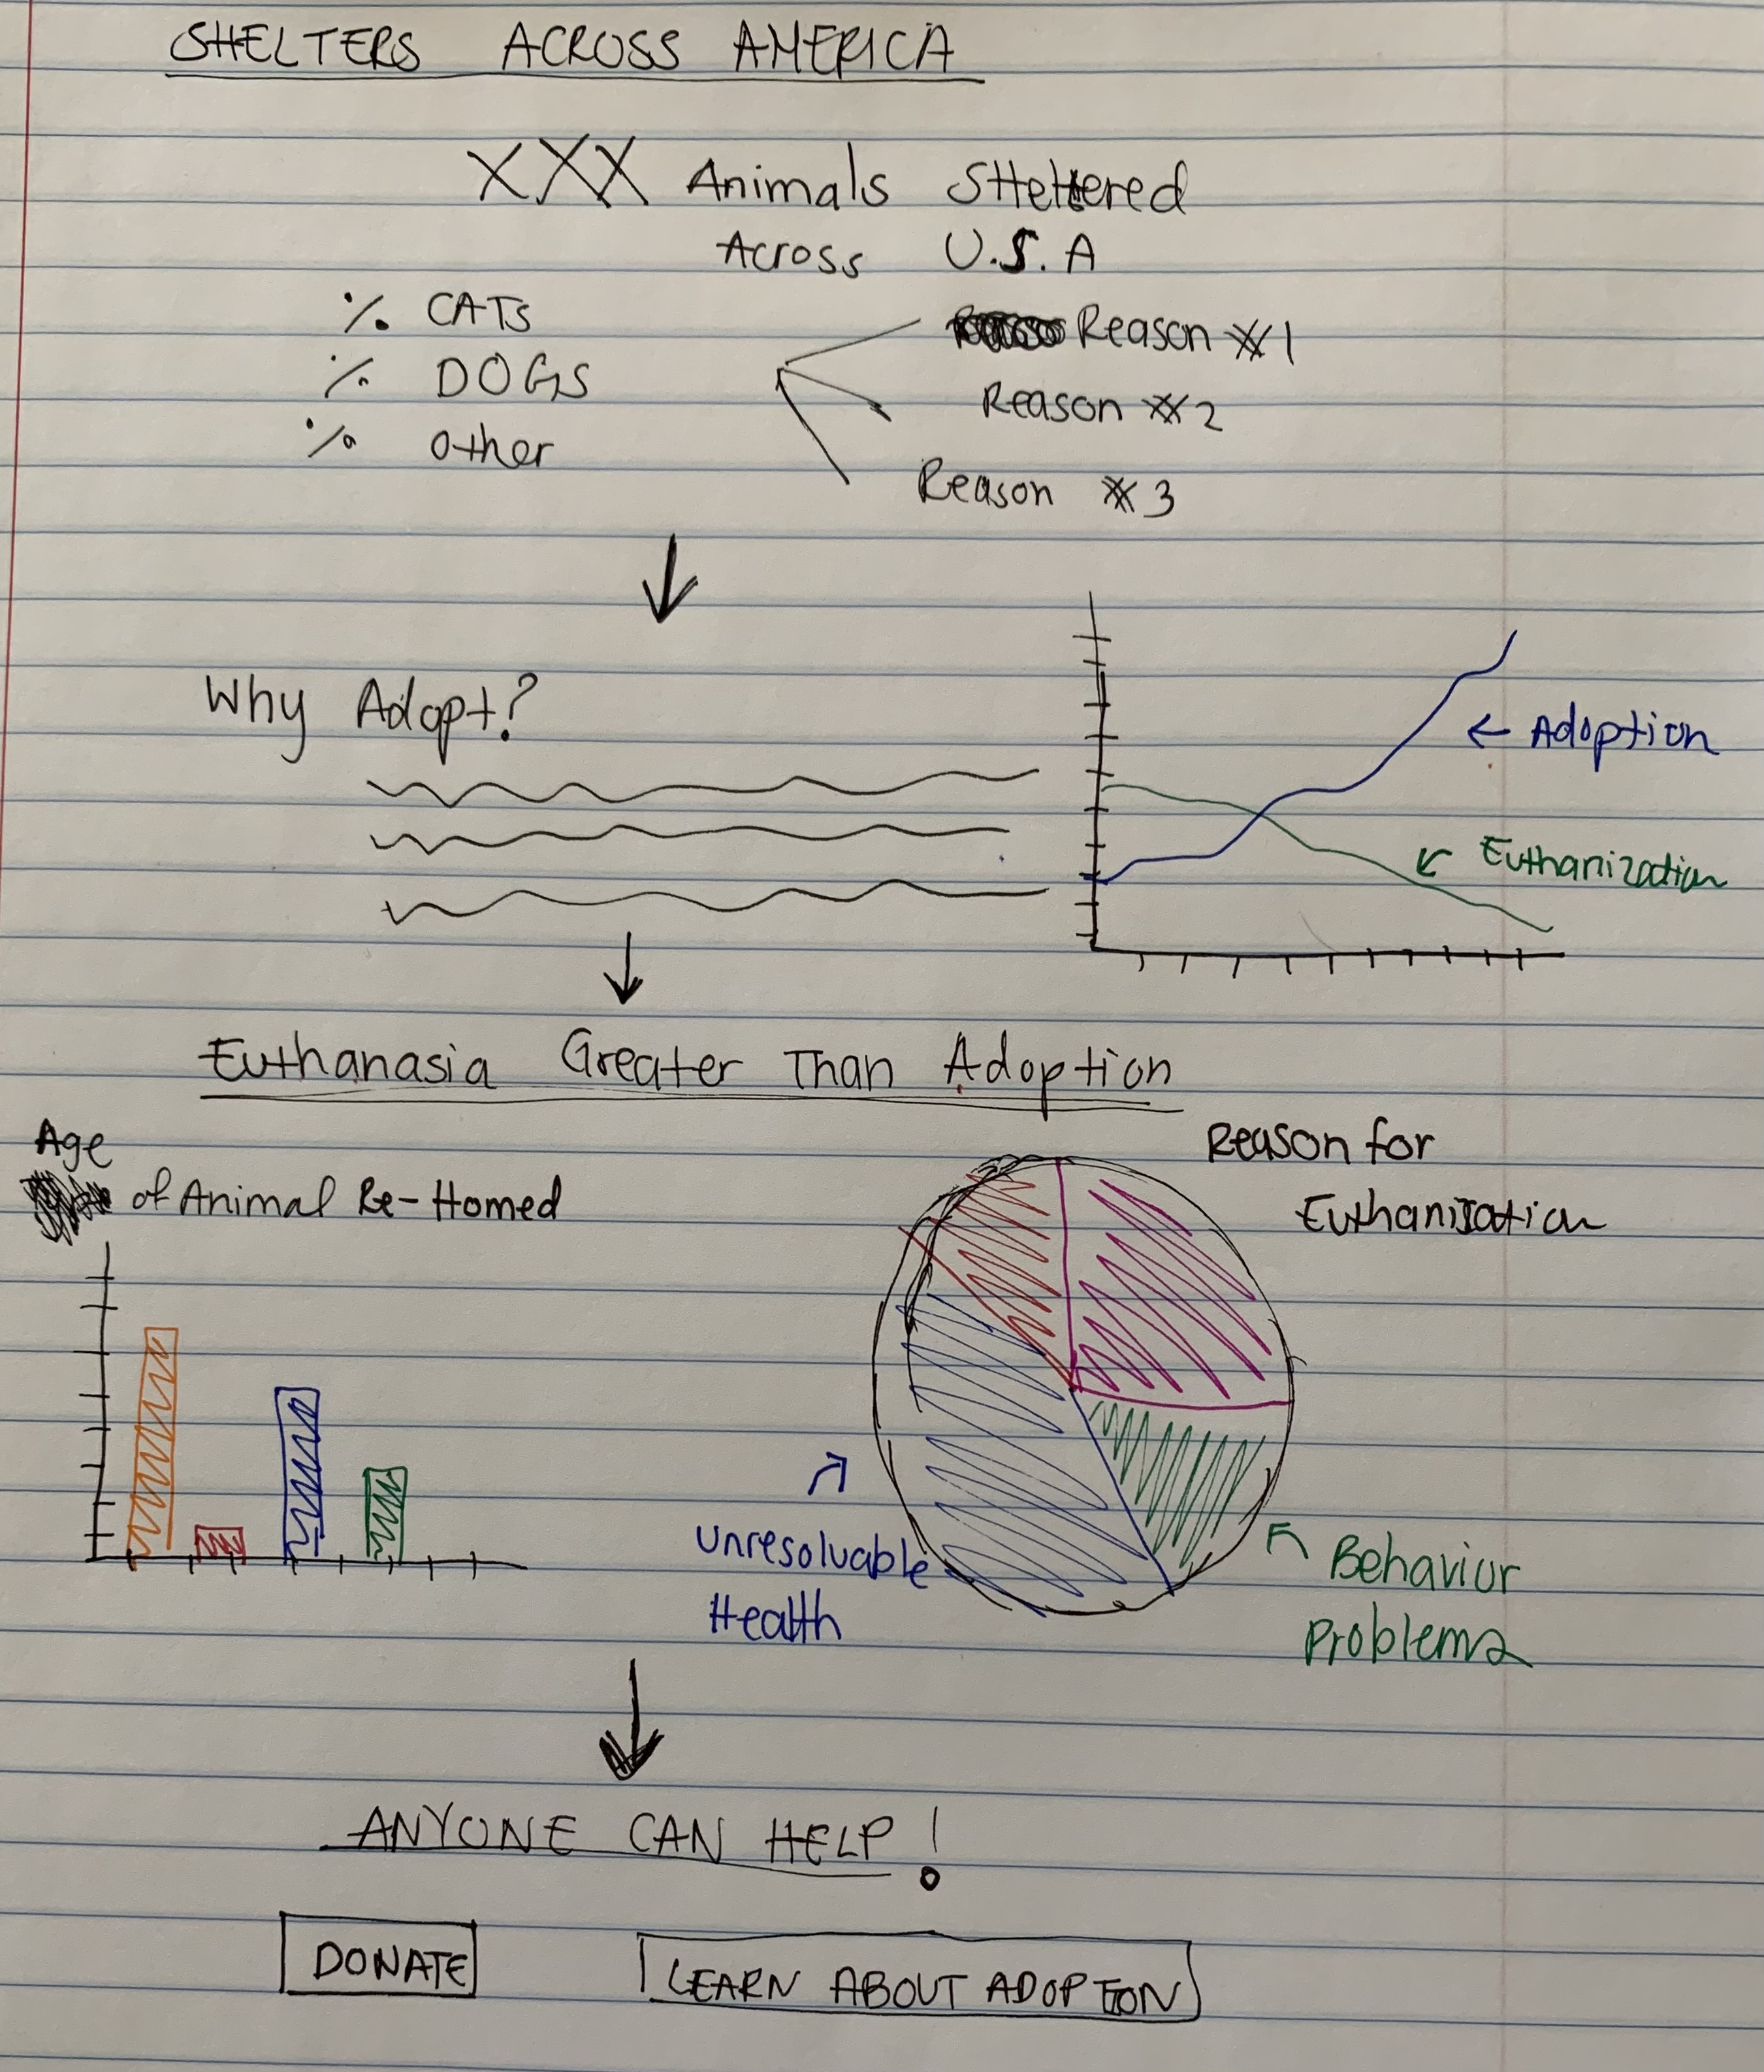 SHELTERS ACROSS AMERICA
XXX Animals SHeltered
Across U.S.A
% CATs
% DOGS
% other
Reason #1
Reason #2
Reason #3
Why Adopt?
← Adoption
Euthanization
Euthanasia Greater Than Adoption
Age
of Animal Re-Homed
Reason for
Euthanization
Unresolvable
Health
Behavior
Problems
ANYONE CAN HELP!
DONATE
LEARN ABOUT ADOPTION